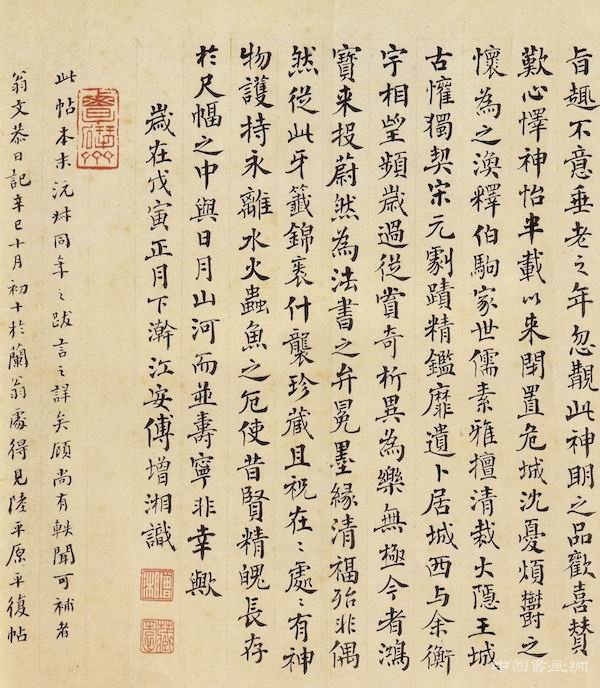 旨趣不意垂老之年忽覩此神明之品歡喜贊
歎心懌神怡半載以來閉置危城沈憂煩鬱之
懷為之渙釋伯駒家世儒素雅擅清裁大隱王城
古懽獨契宋元劇蹟精鑑靡遺卜居城西与余衡
宇相望頻歲過從賞奇析異為樂無極今者鴻
寶來投蔚然為法書之弁冕墨緣清福殆非偶
然從此牙籤錦裹什襲珍藏且祝在〻處〻有神
物護持永離水火蟲魚之厄使昔賢精魄長存
於尺幅之中與日月山河而並壽寧非幸歟
歲在戊寅正月下澣江安傅增湘識
此帖本末沅叔同年之跋言之詳矣顧尚有軼聞可補者
翁文恭日記辛巳十月初十於蘭翁處得見陸平原平復帖
中国書画網